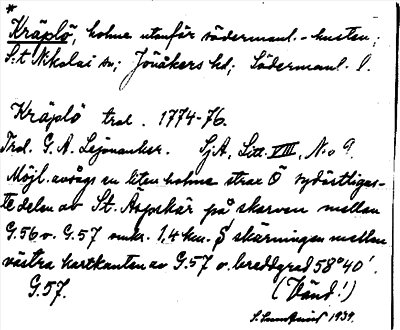 *
Kräplö, holme utanför södermanl.-kusten;
S:t Nikolai sn; Jönåkers hd; Södermanl. l.
Kräplö trol. 1774-76.
Trol. G. A. Lejonanker. SjA, Litt. VIII, No 9.
Möjl. avsågs en liten holme strax Ö sydöstligas-
te delen av St. Aspskär på skarven mellan
G.56 o. G.57 omkr. 1,4 km. S skärningen mellan
västra kartkanten av G.57 o. breddgrad 58°40'.
G.57. (Vänd!)
S. Lundqvist 1939.